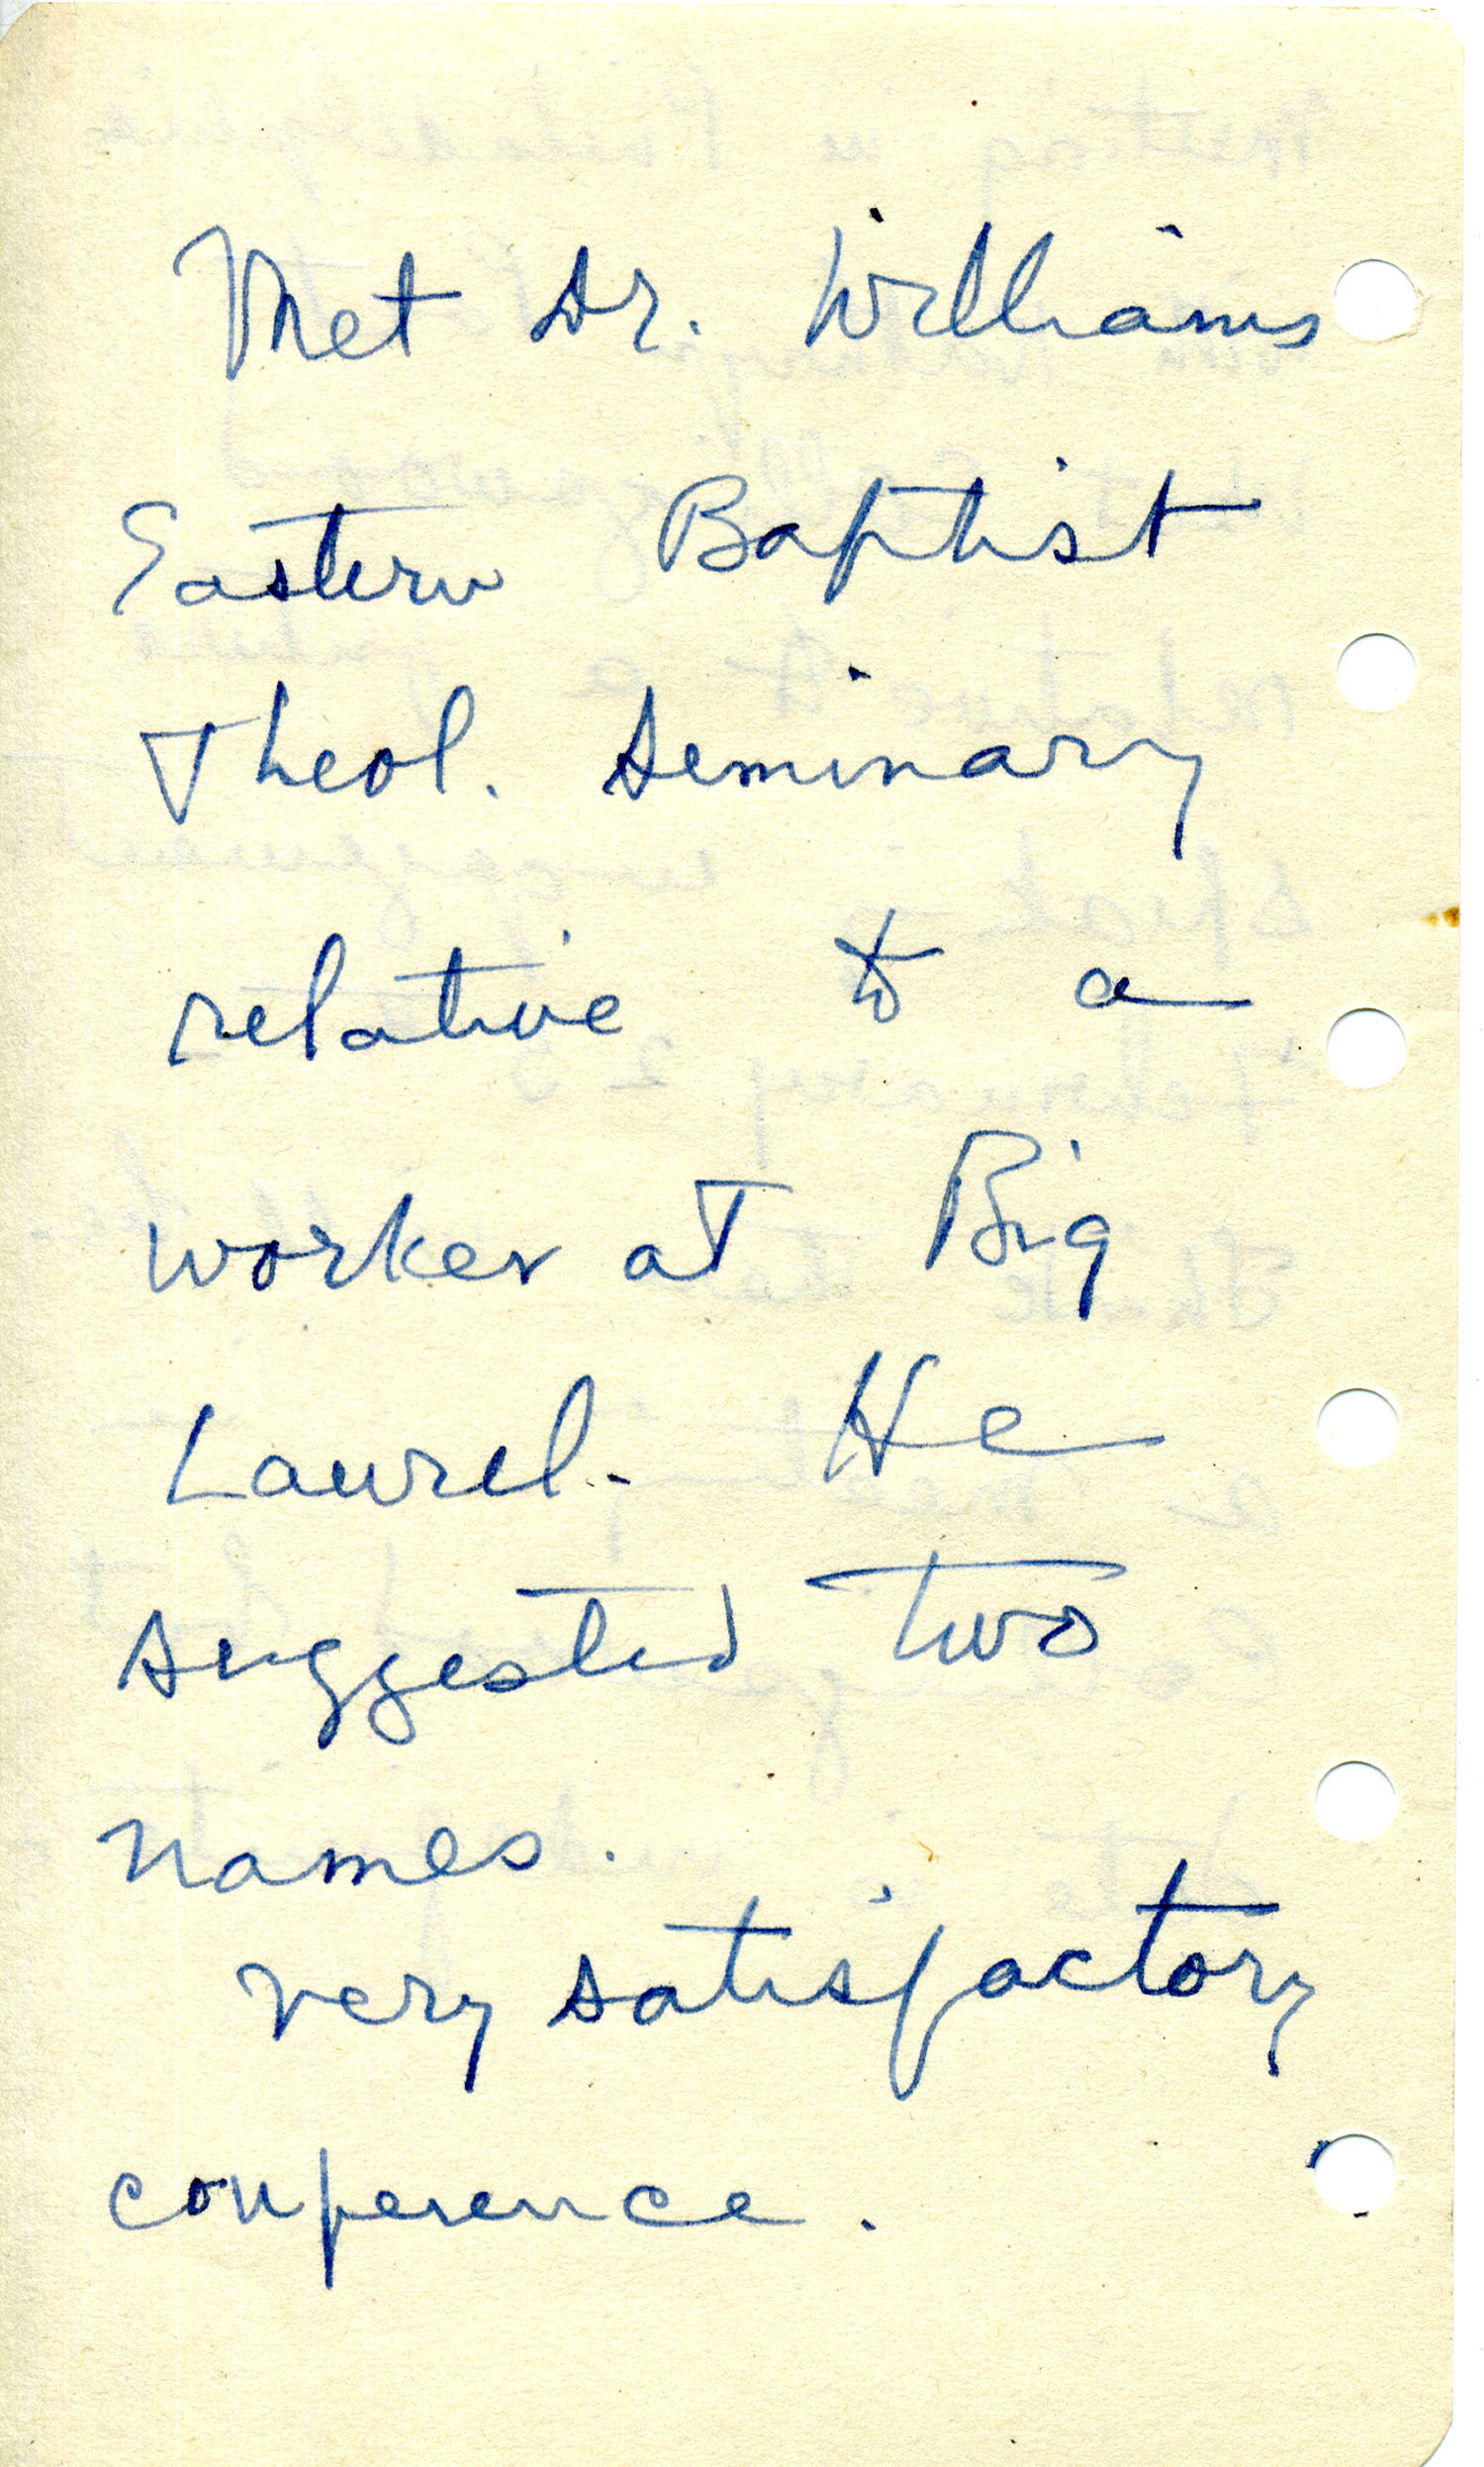 Met Dr. Williams
Eastern Baptist
Theol. Seminary
relative to a
worker at Big
Laurel. He
suggested two
names.
Very satisfactory
conference.